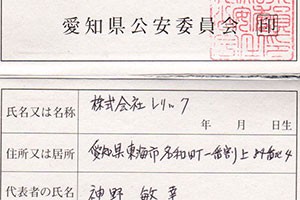 愛知県公安委員会 印
氏名又は名称 株式会社レリック
年 月 日生
住所又は居所 愛知県東海市名和町一番割上84番地4
代表者の氏名 神野 敏幸